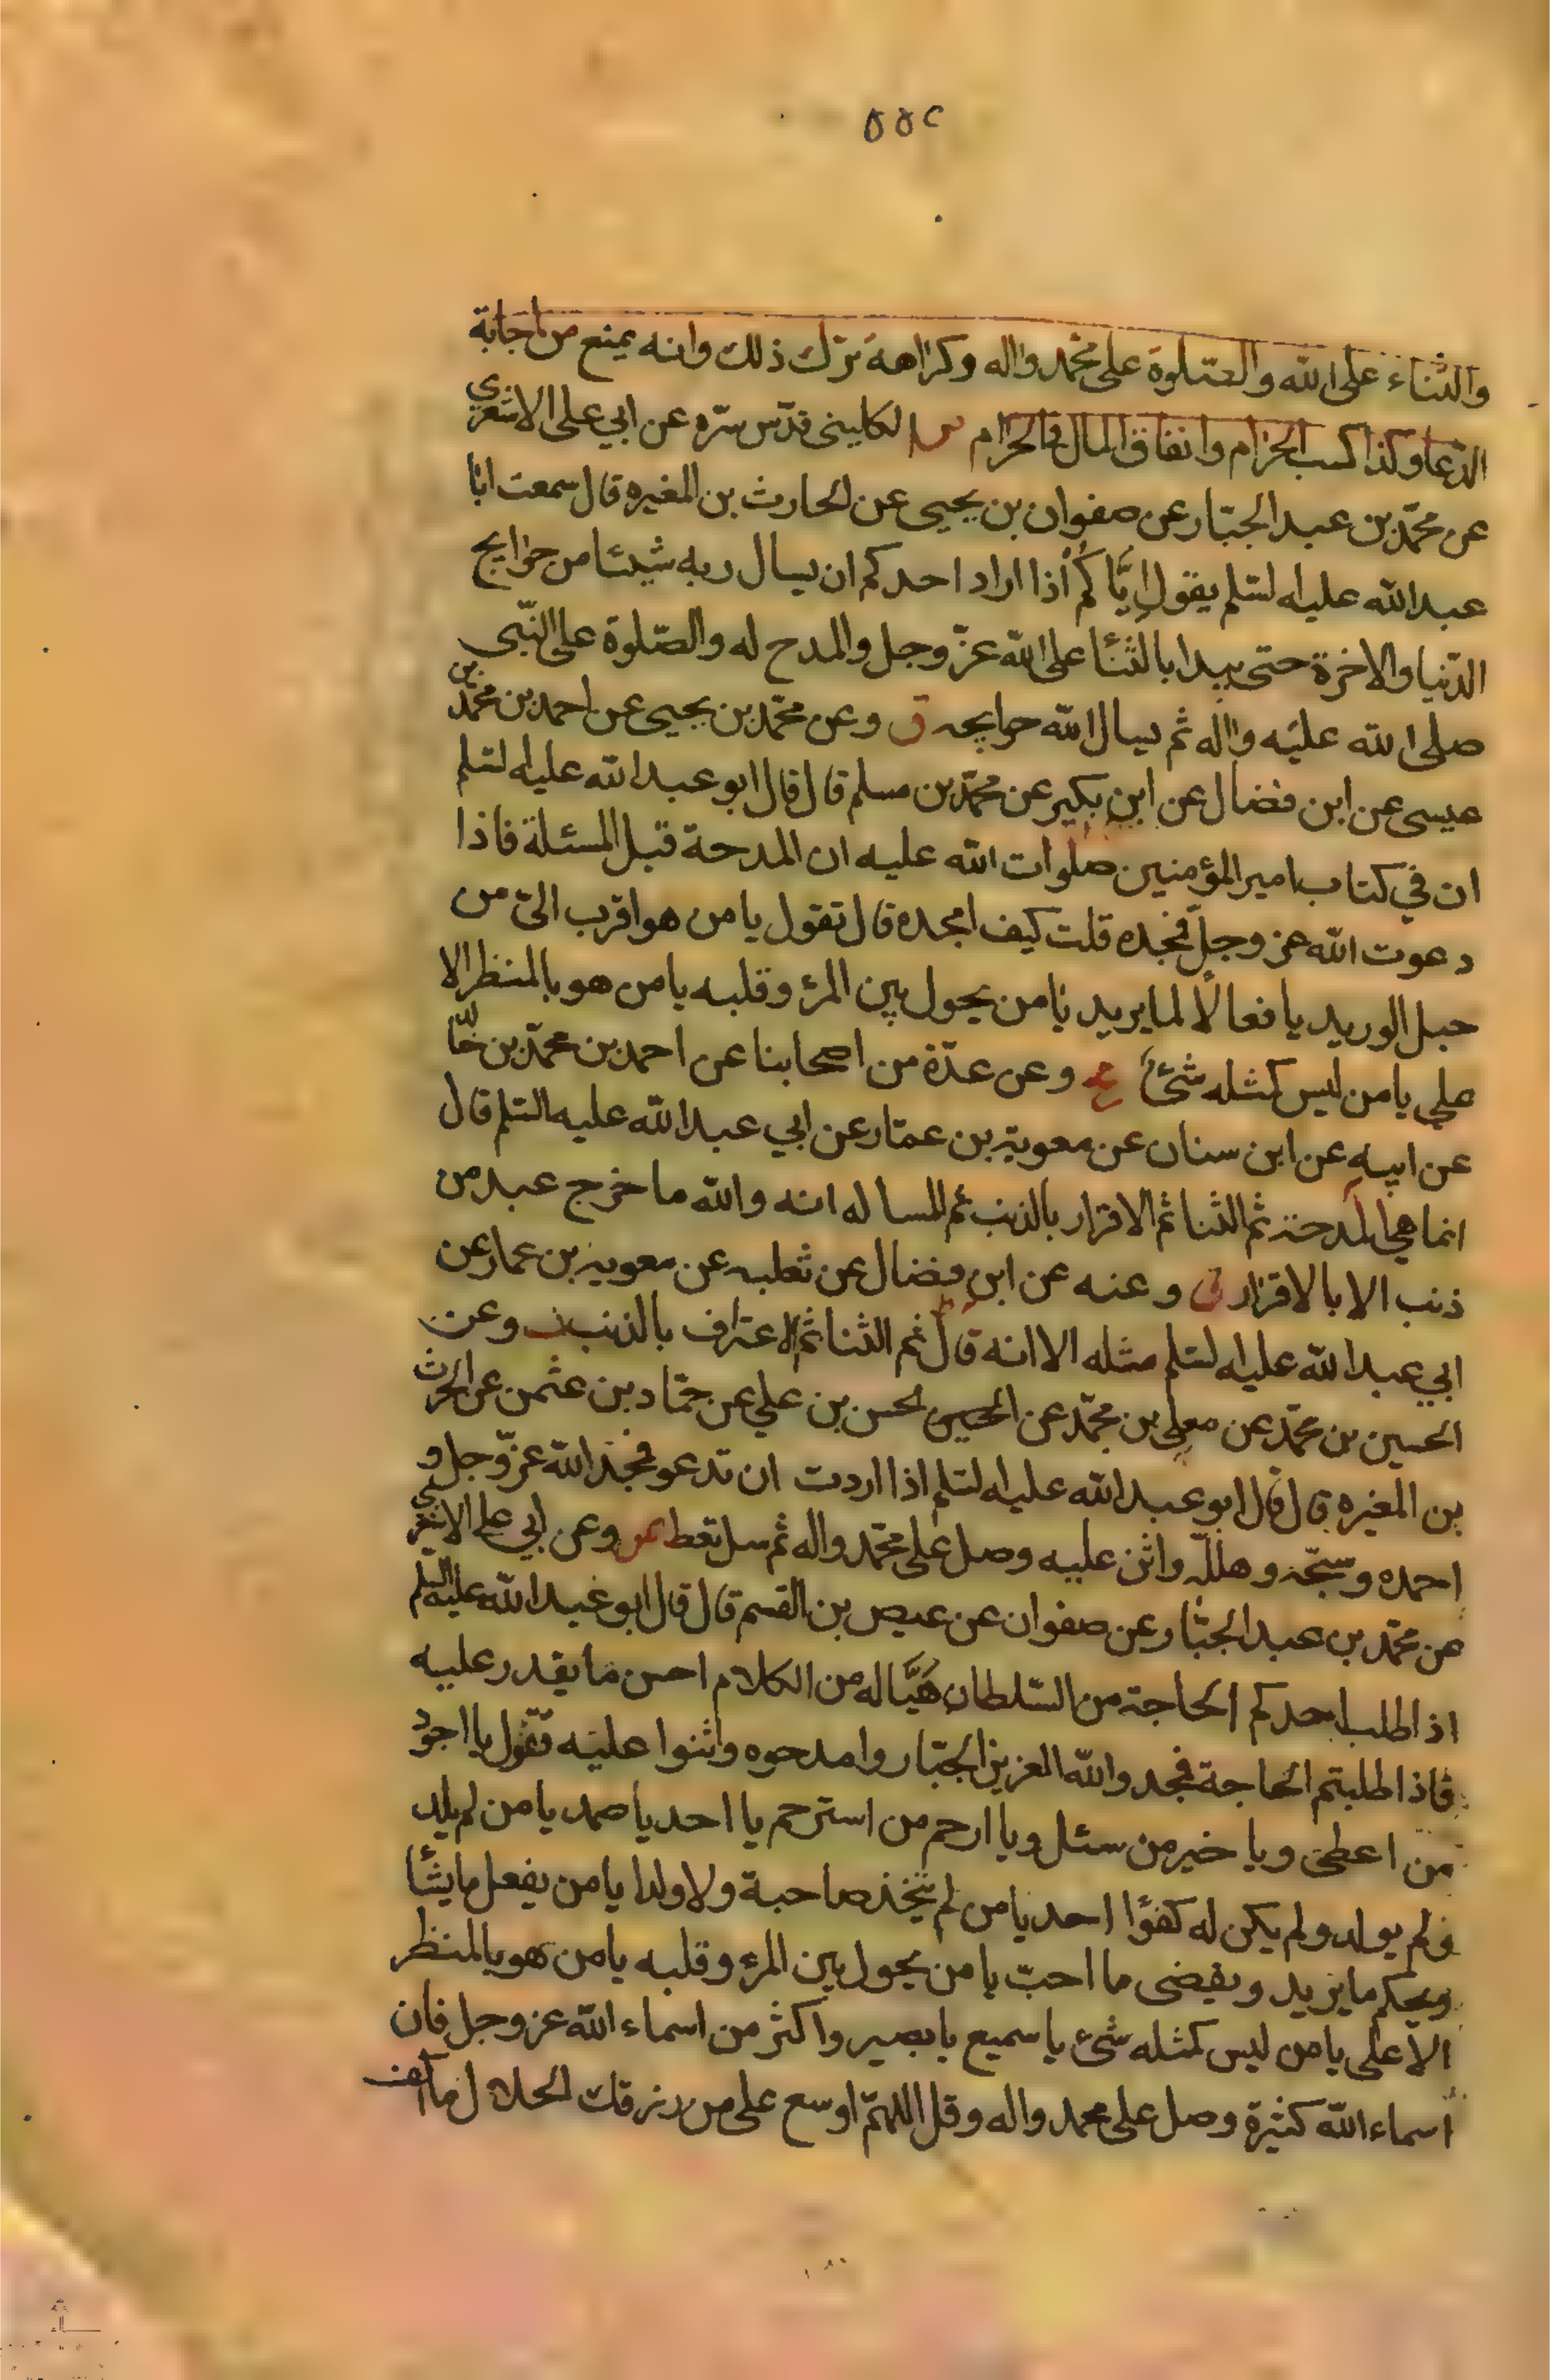 ٥٥٢
والثناء على الله والصلوة على محمد واله وكراهة ترك ذلك وانه يمنع من اجابة
الدعا وكذا كسب الحرام وانفاق المال في الحرام الكليني قدس سره عن ابي على الاشعري
عن محمد بن عبد الجبار عن صفوان بن يحيى عن الحارث بن المغيره قال سمعت ابا
عبد الله عليه السلم يقول اياكم اذا اراد احدكم ان يسال ربه شيئا من حوايج
الدنيا والاخرة حتى يبدا بالثنا على الله عز وجل والمدح له والصلوة على النبي
صلى الله عليه واله ثم يسال الله حوايجه ق وعن محمد بن يحيى عن احمد بن محمد بن
عيسى عن ابن فضال عن ابن بكير عن محمد بن مسلم قال قال ابو عبد الله عليه السلم
ان في كتاب امير المؤمنين صلوات الله عليه ان المدحة قبل المسئلة فاذا
دعوت الله عز وجل فمجده قلت كيف امجده قال تقول يا من هو اقرب الى من
حبل الوريد يا فعالا لما يريد يا من يحول بين المرء وقلبه يا من هو بالمنظر الا
على يا من ليس كمثله شئ وعن عدة من اصحابنا عن احمد بن محمد بن خالد
عن ابيه عن ابن سنان عن معوية بن عمار عن ابي عبد الله عليه السلم قال
انما هي المدحة ثم الثنا ثم الاقرار بالذنب ثم المساله انه والله ما خرج عبد من
ذنب الا بالاقرار ق وعنه عن ابن فضال عن ثعلبه عن معويه بن عمار عن
ابي عبد الله عليه السلم مثله الا انه قال ثم الثنا ثم الاعتراف بالذنب وعن
الحسين بن محمد عن معلى بن محمد عن الحسن بن علي عن حماد بن عثمن عن الحرث
بن المغيره قال قال ابو عبد الله عليه السلم اذا اردت ان تدعو فمجد الله عز وجل و
احمده وسبحه وهلله واثن عليه وصل على محمد واله ثم سل تعط وعن ابي على الاشعري
عن محمد بن عبد الجبار عن صفوان عن عيص بن القسم قال قال ابو عبد الله عليه السلم
اذا طلب احدكم الحاجة من السلطان هيَّا له من الكلام احسن ما يقدر عليه
فاذا طلبتم الحاجة فمجدوا لله العزيز الجبار وامدحوه واثنوا عليه تقول يا اجود
من اعطى ويا خير من سئل ويا ارحم من استرحم يا احد يا صمد يا من لم يلد
ولم يولد ولم يكن له كفؤا احد يا من لم يتخذ صاحبة ولا ولدا يا من يفعل ما يشأ
ويحكم ما يريد ويقضى ما احب يا من يحول بين المرء وقلبه يا من هو بالمنظر
الاعلى يا من ليس كمثله شئ يا سميع يا بصير واكثر من اسماء الله عز وجل فان
اسماء الله كثيرة وصل على محمد واله وقل اللهم اوسع على من رزقك الحلال ما اكف